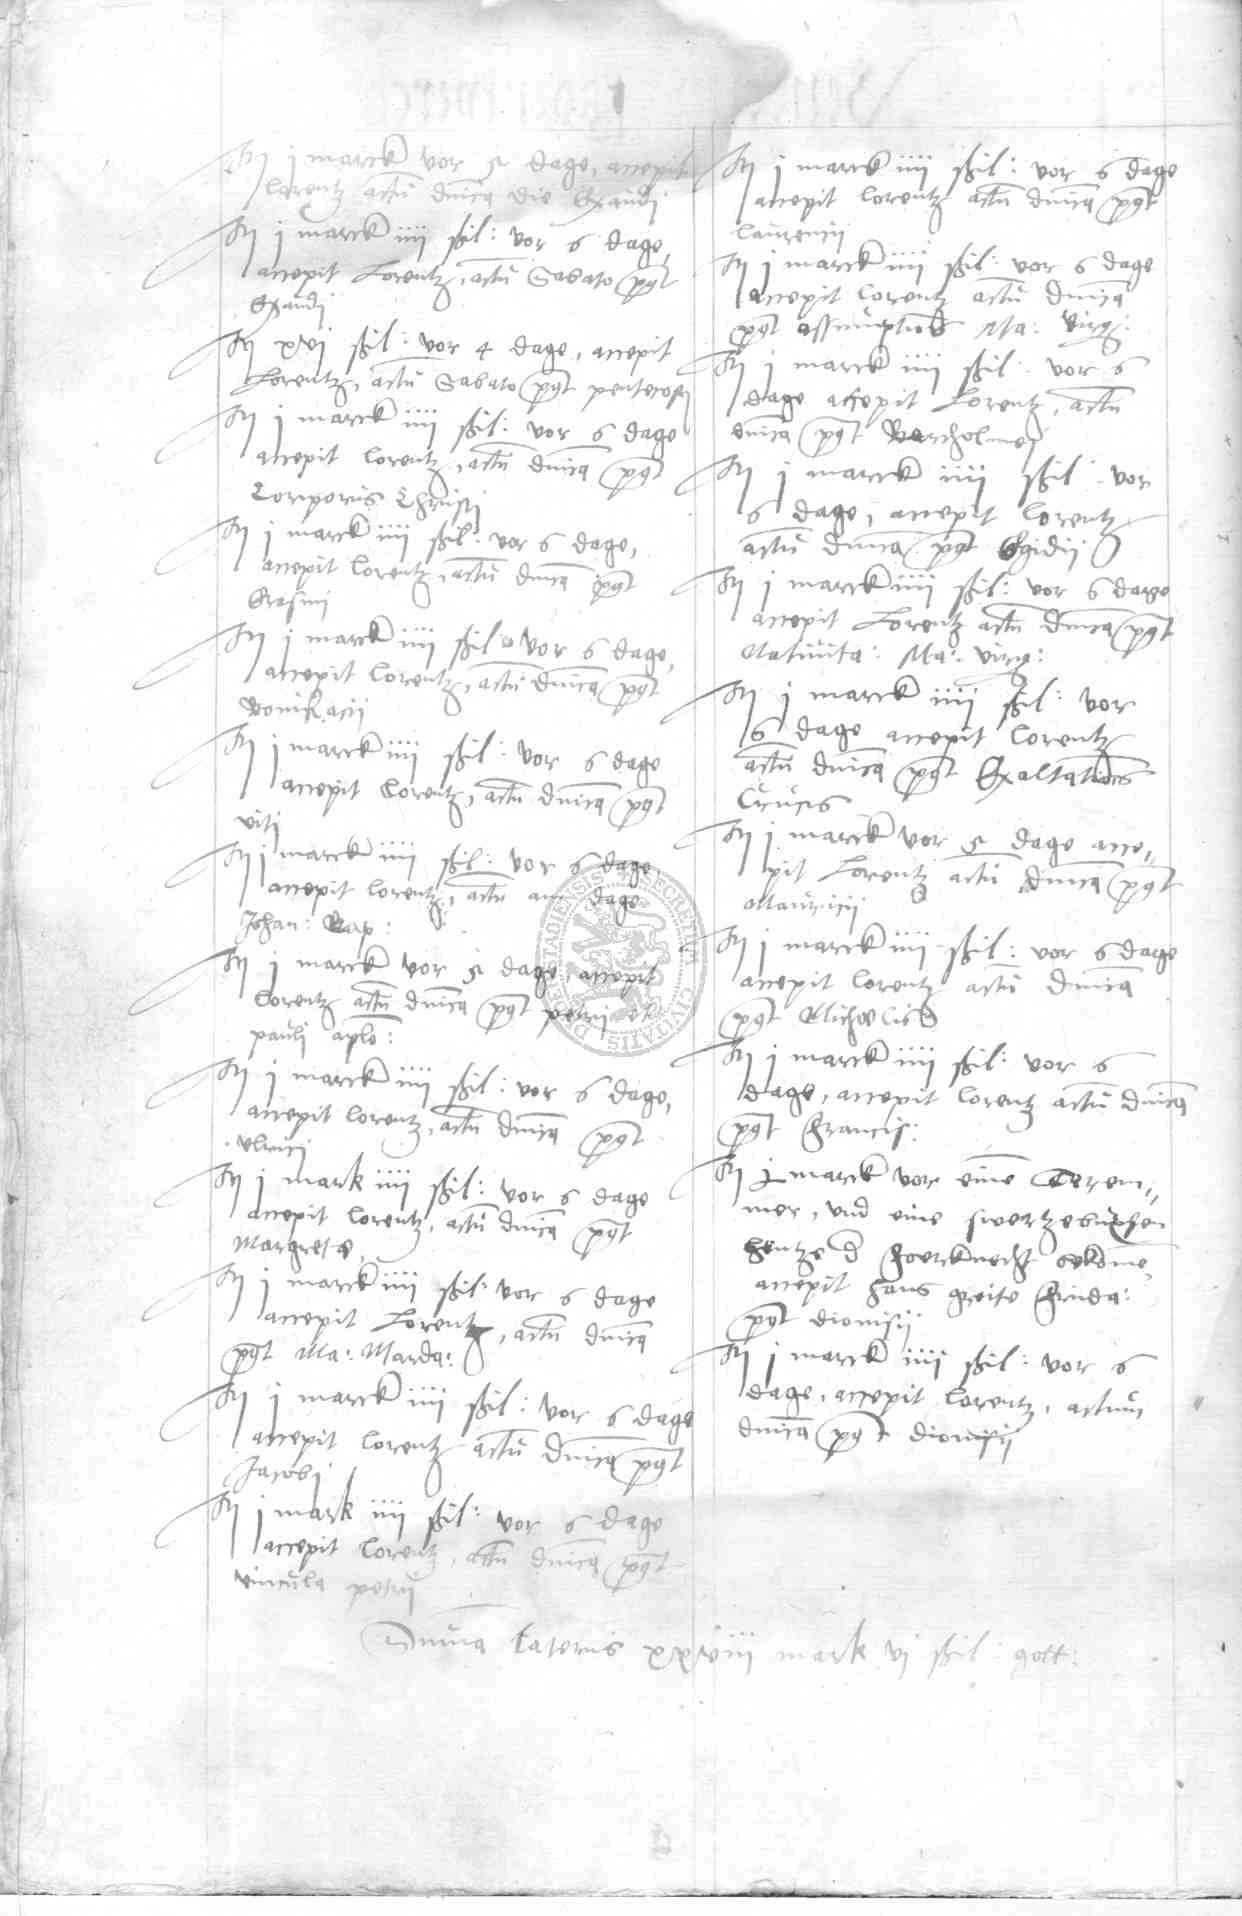 It j marck vor 5 dage, accepit
lorentz actu dnica die Exaudi
It j marck iiij ßil: vor 6 dage,
accepit Lorentz, actu Sabato pt
Exaudi
It xvj ßil: vor 4 dage, accepit
Lorentz, actu Sabato pt pentecost
It j marck iiij ßil: vor 6 dage
accepit lorentz, actu dnica pt
Corporis Christi
It j marck iiij ßil: vor 6 dage,
accepit lorentz, actu dnica pt
Erasmi
It j marck iiij ßil: vor 6 dage,
accepit lorentz, actu dnica pt
Bonifacii
It j marck iiij ßil: vor 6 dage
accepit Lorentz, actu dnica pt
viti
It j marck iiij ßil: vor 6 dage
accepit lorentz, actu am dage
Johan: Bap:
It j marck vor 5 dage accepit
Lorentz actu dnica pt petri et
pauli aplo:
It j marck iiij ßil: vor 6 dage,
accepit lorentz, actu dnica pt
vlrici
It j mark iiij ßil: vor 6 dage
accepit lorentz, actu dnica pt
Margrete,
It j marck iiij ßil: vor 6 dage
accepit Lorentz, actu dnica
pt Ma: Magda:
It j marck iiij ßil: vor 6 dage
accepit lorentz actu dnica pt
Jacobi
It j mark iiij ßil: vor 6 dage
accepit lorentz, actu dnica pt
vincula petri
It j marck iiij ßil: vor 6 dage
accepit lorentz actu dnica pt
laurencii
It j marck iiij ßil: vor 6 dage
accepit lorentz actu dnica
pt assumptiois Ma: virg:
It j marck iiij ßil: vor 6
dage accepit Lorentz, actu
dnica pt Bartholmej
It j marck iiij ßil: vor
6 dage, accepit lorentz
actu dnica pt Egidii
It j marck iiij ßil: vor 6 dage
accepit Lorentz actu dnica pt
Natiuita: Ma: virg:
It j marck iiij ßil: vor
6 dage accepit lorentz
actu dnica pt Exaltatiois
Crucis
It j marck vor 5 dage acce„
pit Lorentz actu dnica pt
Mauricii
It j marck iiij ßil: vor 6 dage
accepit lorentz actu dnica
pt Michaelis
It j marck iiij ßil: vor 6
dage, accepit lorentz actu dnica
pt Francis:
It j marck vor eine
mer, vnd eine
hentze
accepit hans
pt dionisii
It j marck iiij ßil: vor 6
dage, accepit lorentz, actum
dnica pt dionisii
Suma lateris xxviii mark vj ßil: gott:
SECRETUM CIVITATIS